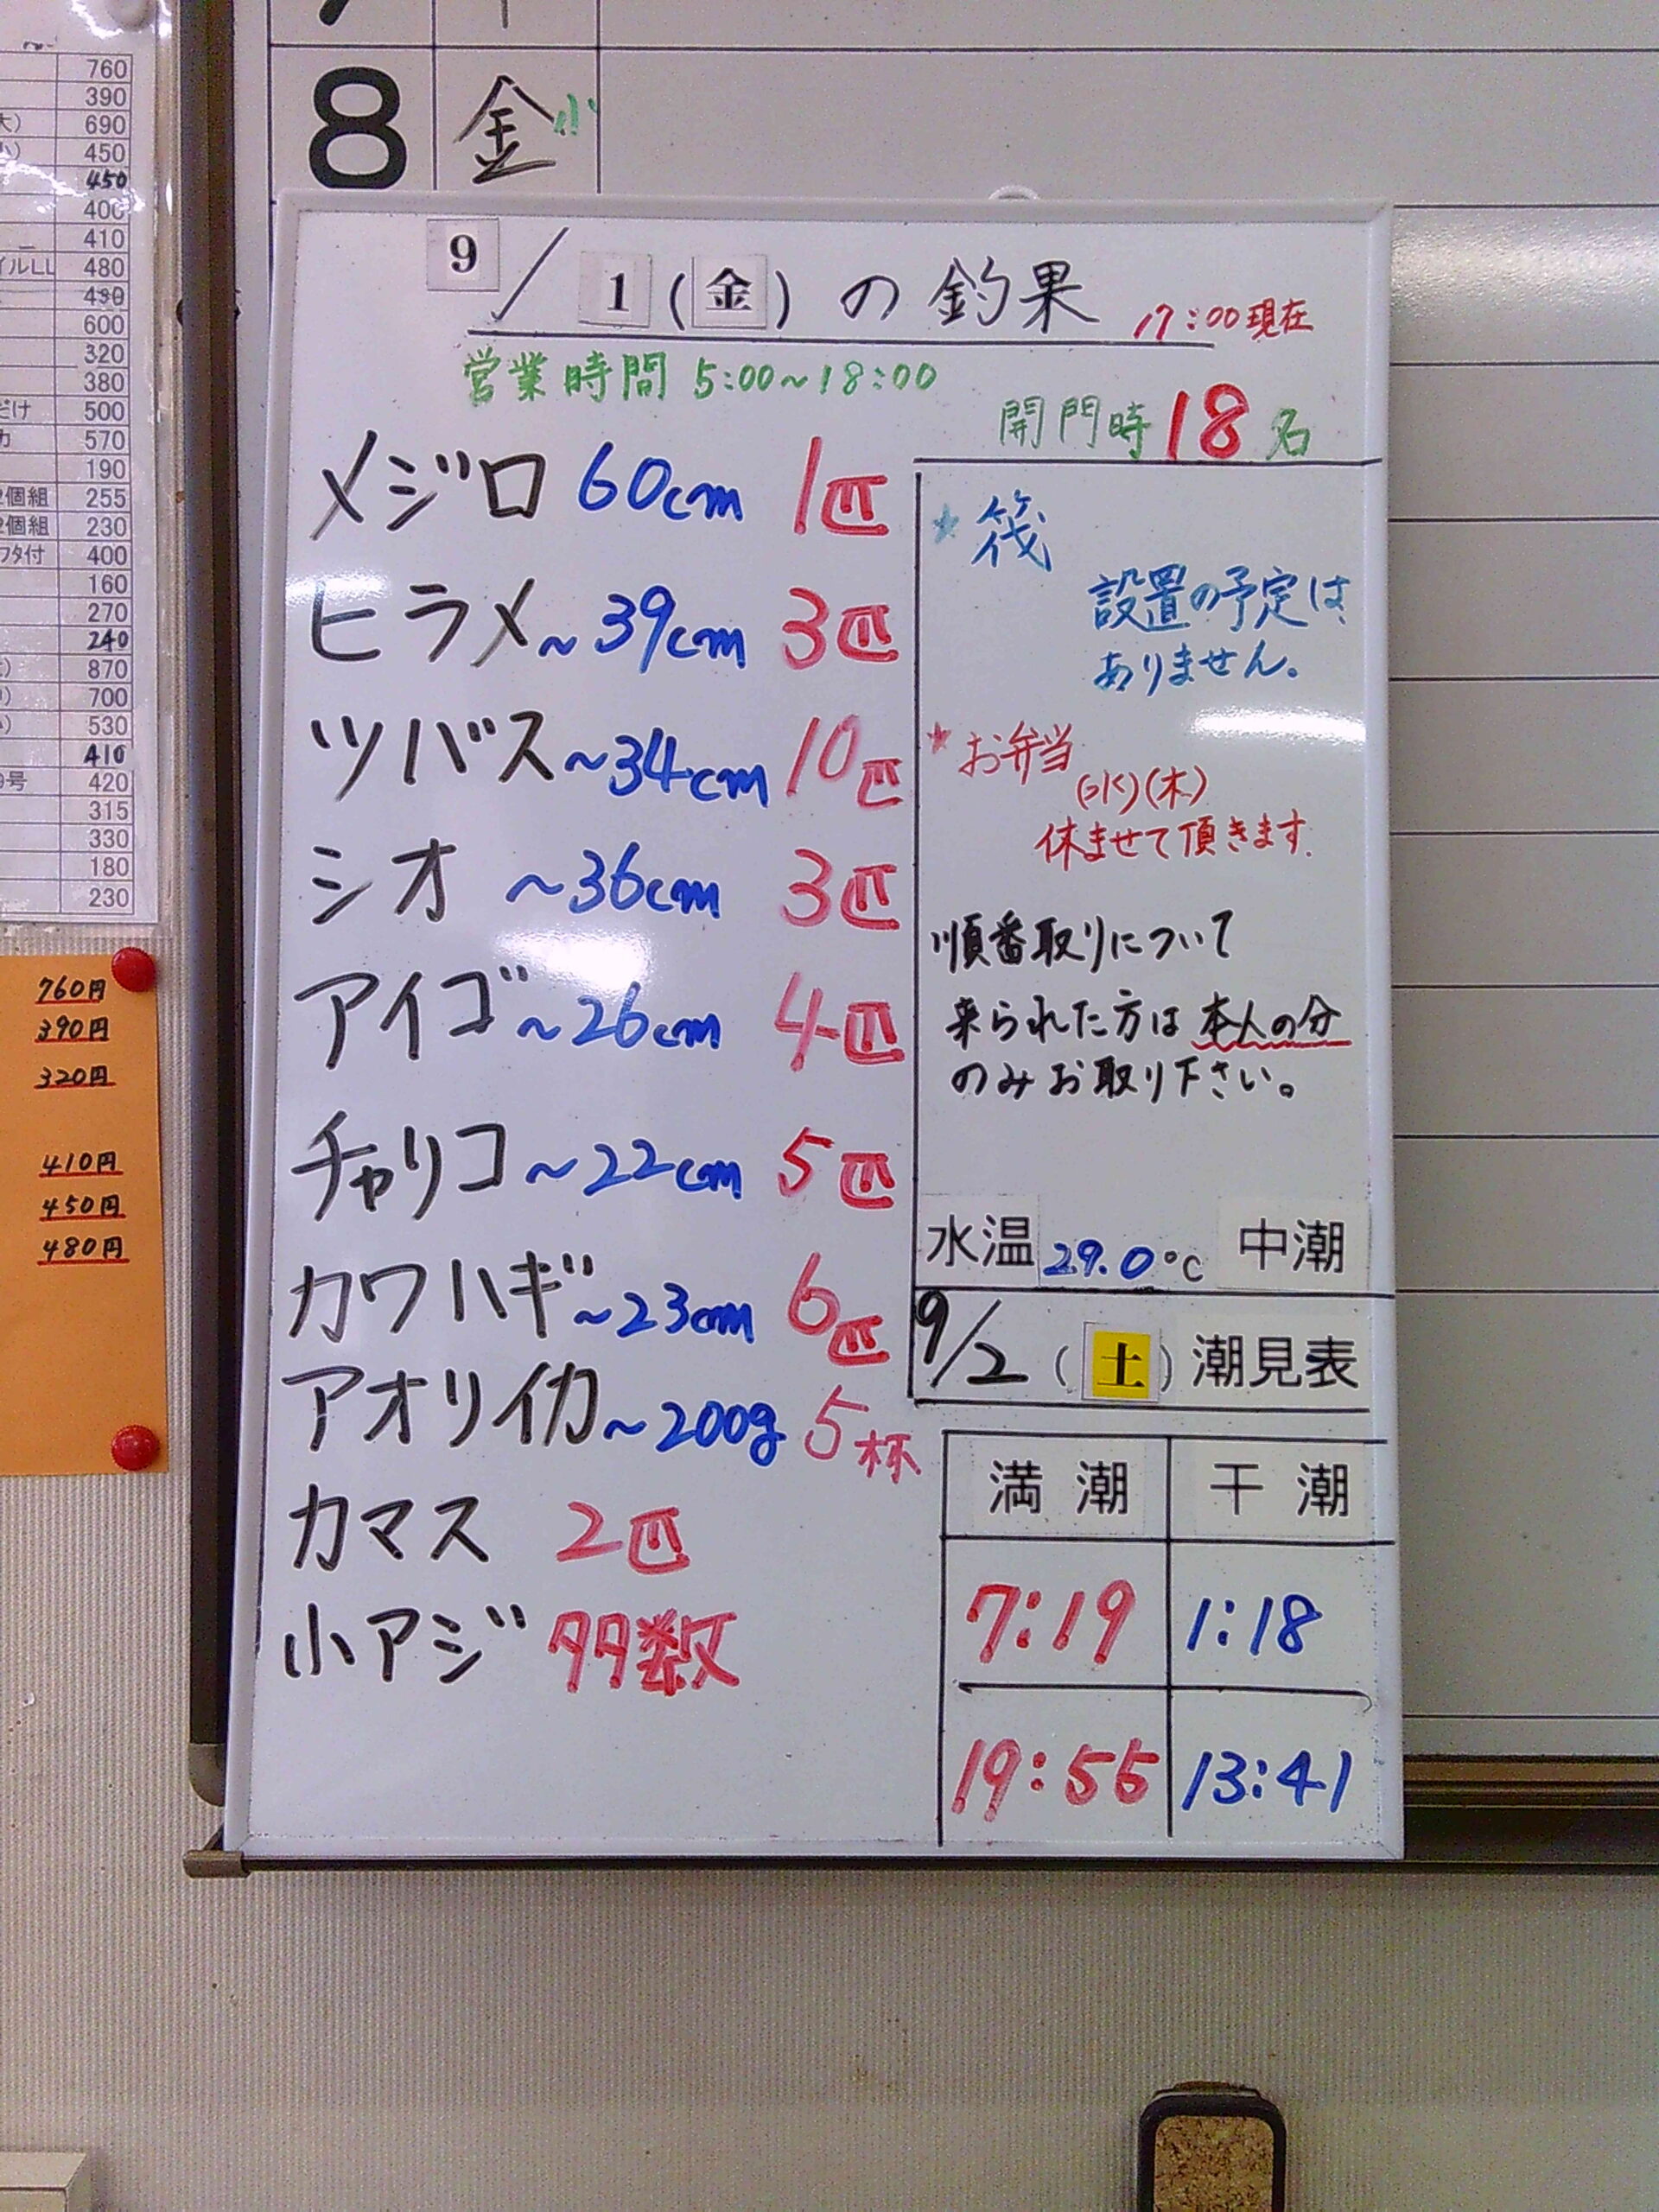 760
390
大) 690
小) 450
450
400
410
イルLL 480
430
600
320
380
だけ 500
カ 570
190
2個組 255
2個組 230
ワタ付 400
160
270
240
870
700
530
410
号 420
315
330
180
230
760円
390円
320円
410円
450円
480円
8 金 小
9/1(金)の釣果 17:00現在
営業時間 5:00~18:00
開門時18名
メジロ 60cm 1匹
ヒラメ~39cm 3匹
ツバス~34cm 10匹
シオ ~36cm 3匹
アイゴ~26cm 4匹
チャリコ~22cm 5匹
カワハギ~23cm 6匹
アオリイカ~200g 5杯
カマス 2匹
小アジ 多数
★筏
設置の予定は
ありません。
★お弁当
(水)(木)
休ませて頂きます.
順番取りについて
来られた方は本人の分
のみお取り下さい。
水温 29.0℃ 中潮
9/2(土)潮見表
満潮 干潮
7:19 1:18
19:55 13:41